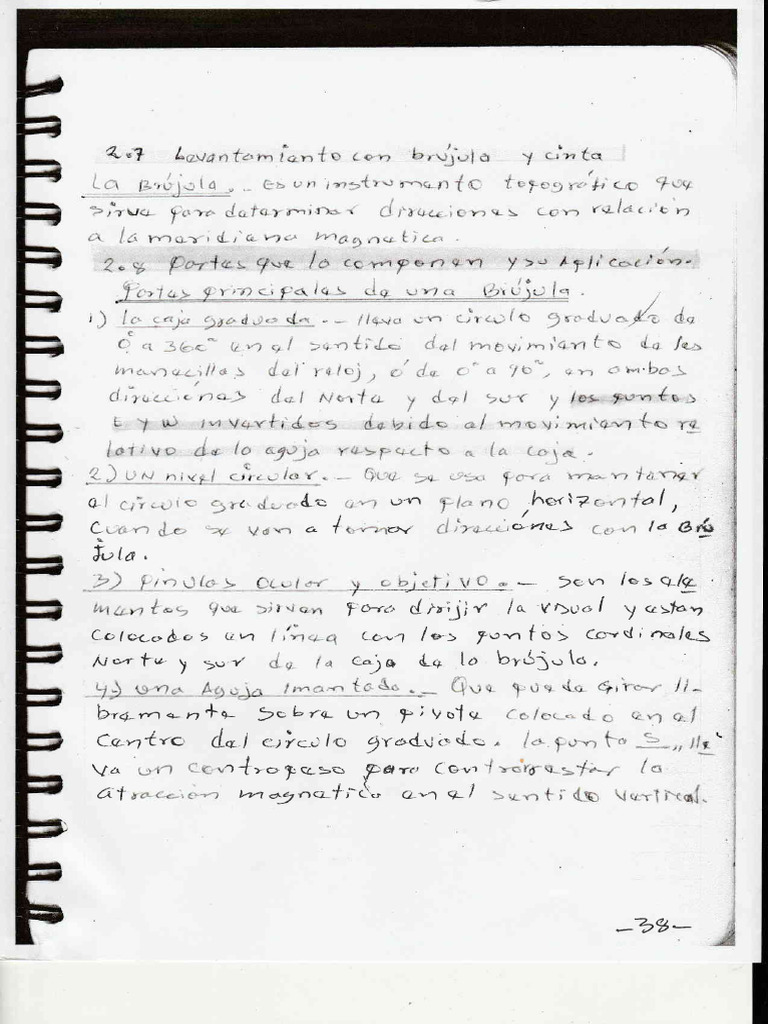 2.7 Levantamiento con brújula y cinta
La Brújula.- Es un instrumento topográfico que
sirve para determinar direcciones con relación
a la meridiana magnetica.
2.8 Partes que lo componen y su Aplicación.
Partes principales de una Brújula.
1) la caja graduada.- lleva un circulo graduado de
0° a 360° en el sentido del movimiento de las
manecillas del reloj, ó de 0° a 90°, en ambas
direcciónes del Norte y del sur y los puntos
E y W invertidos debido al movimiento re
lativo de la aguja respecto a la caja.
2) UN nivel circular.- Que se usa para mantener
el círculo graduado en un plano horizontal,
Cuando se van a tomar direcciónes con la Brú
jula.
3) Pínulas Ocular y objetivo.- Son los ele
mentos que sirven para dirijir la visual y estan
colocados en línea con los puntos cardinales
Norte y sur de la caja de la brújula.
4) una Aguja Imantada.- Que puede Girar li-
bremente Sobre un pivote colocado en el
Centro del circulo graduado. la punta S, lle
va un contrapeso para contrarrestar la
atracción magnetica en el sentido vertical.
-38-